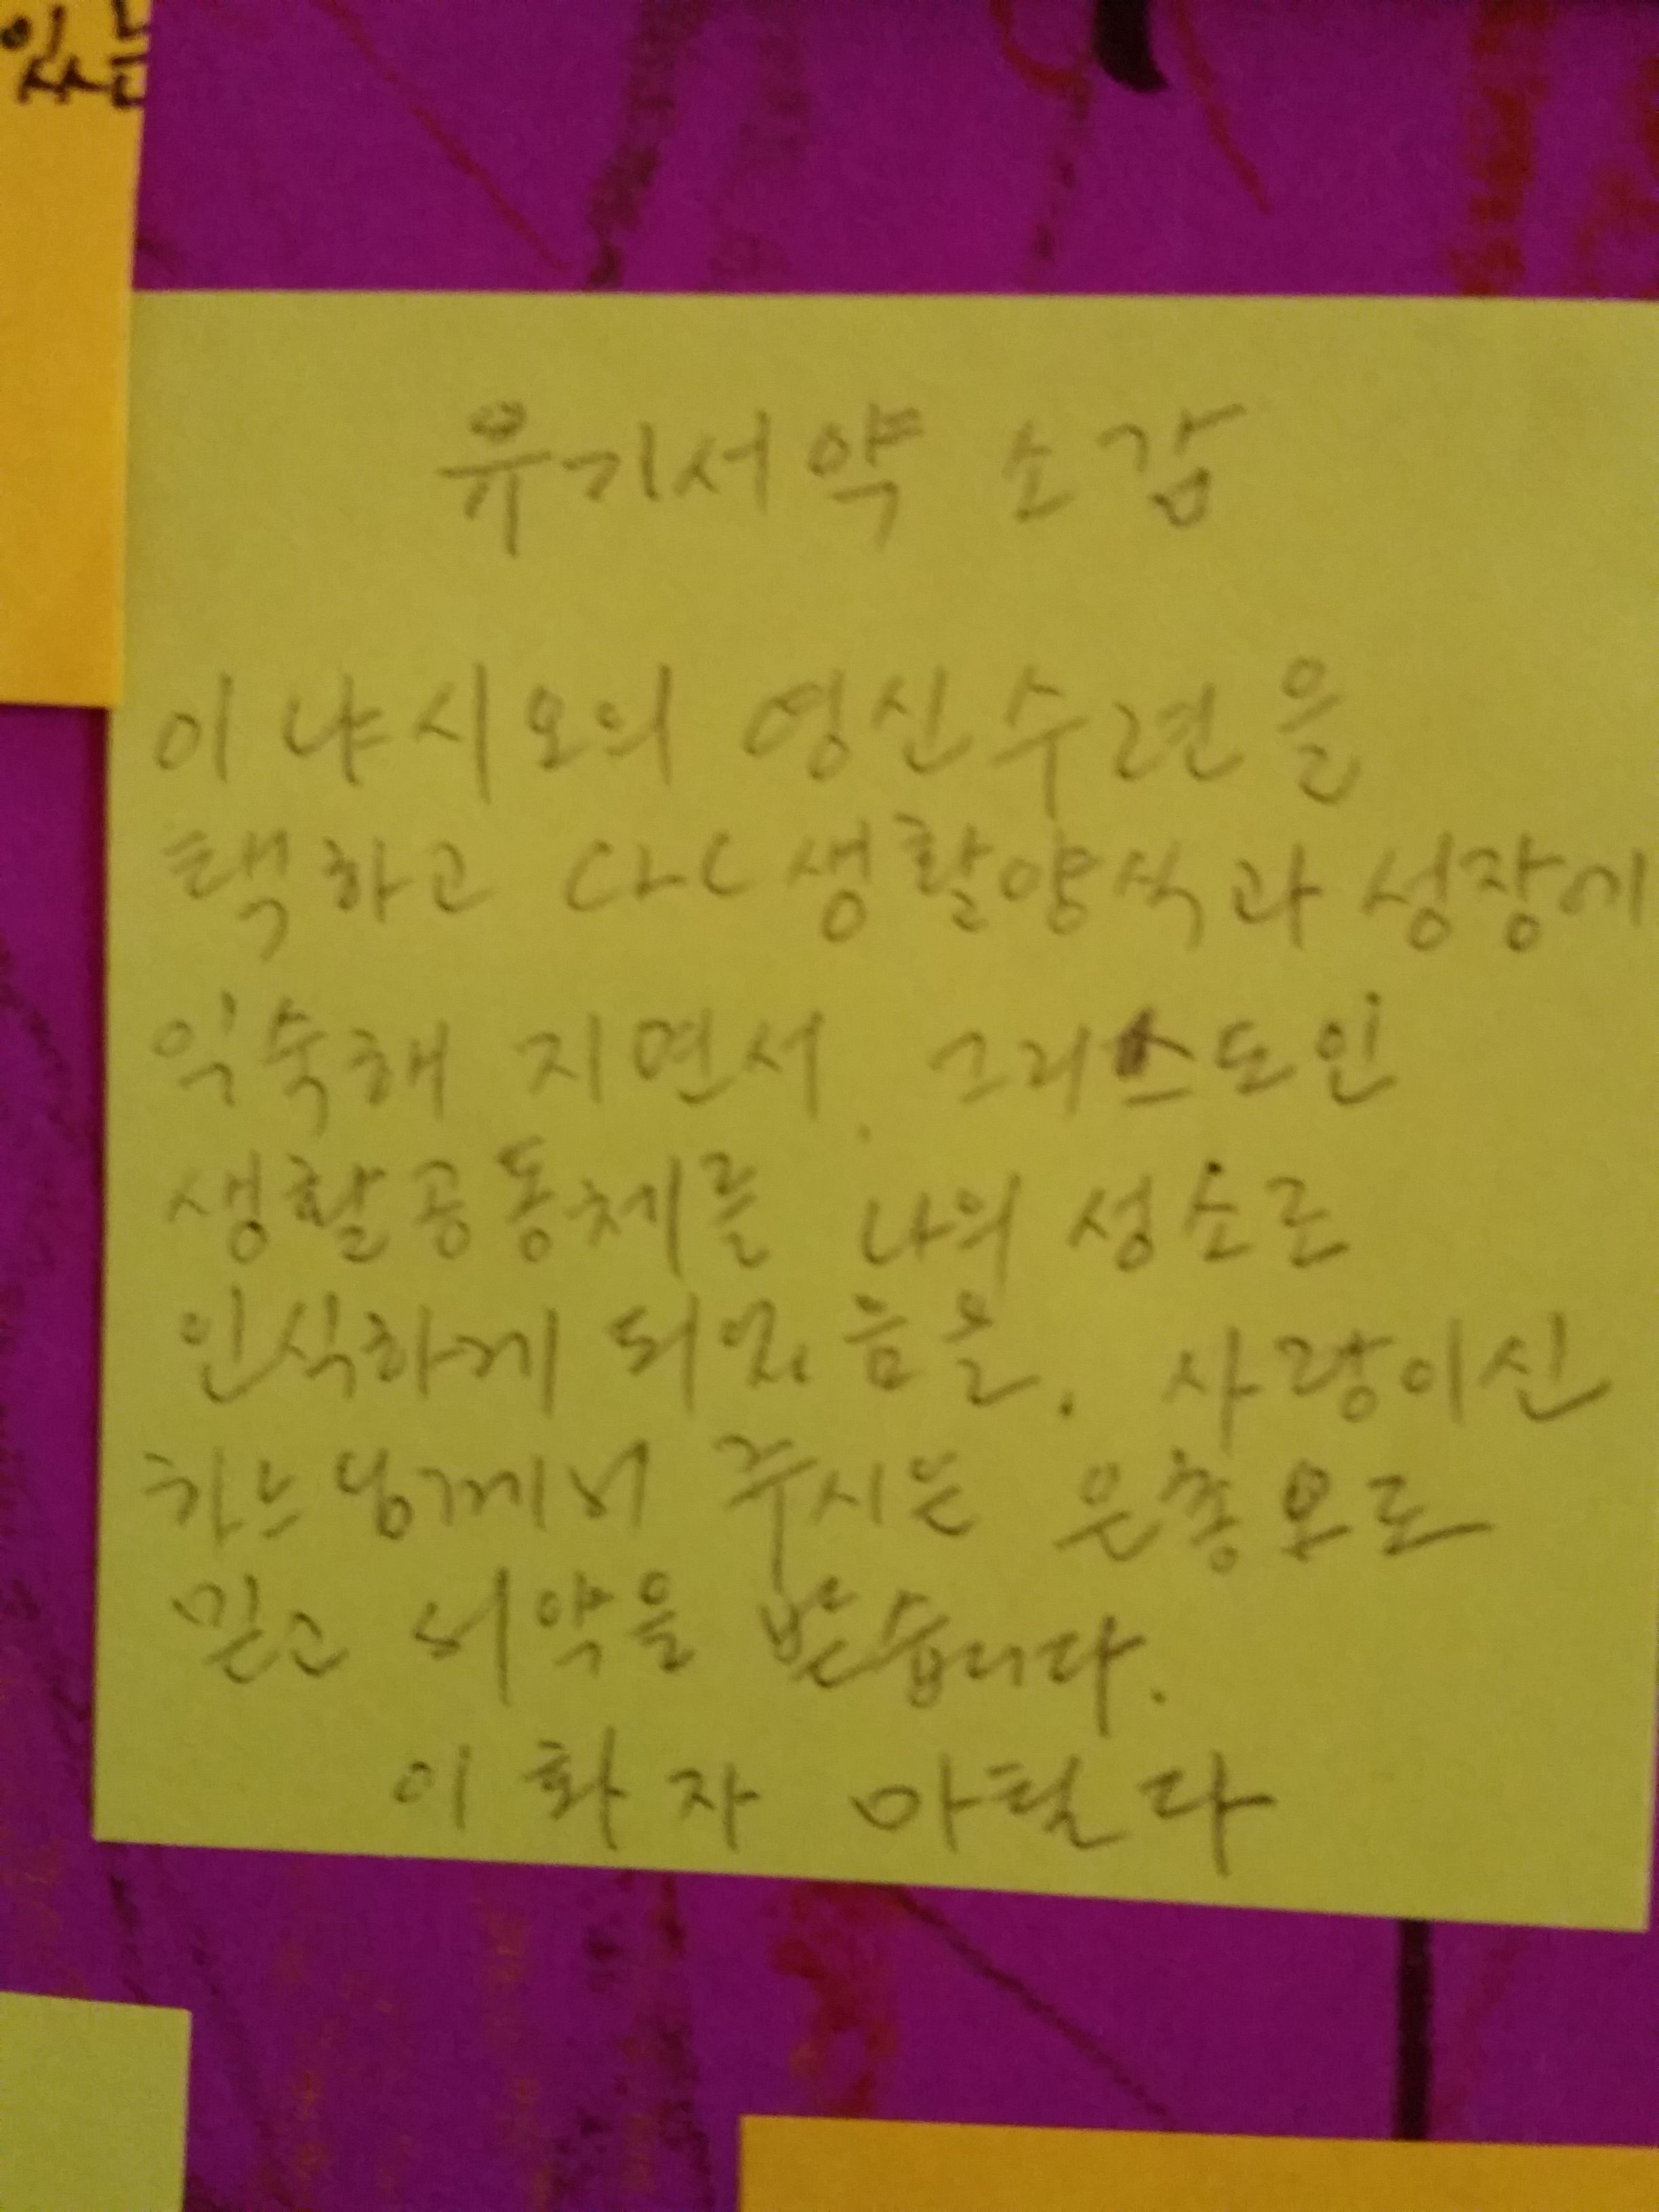 있는
유기서약 소감
이냐시오의 영신수련을
택하고 CLC 생활양식과 성장에
익숙해 지면서. 그리스도인
생활공동체를 나의 성소로
인식하게 되었음을. 사랑이신
하느님께서 주시는 은총으로
믿고 서약을 받습니다.
이화자 마틸다